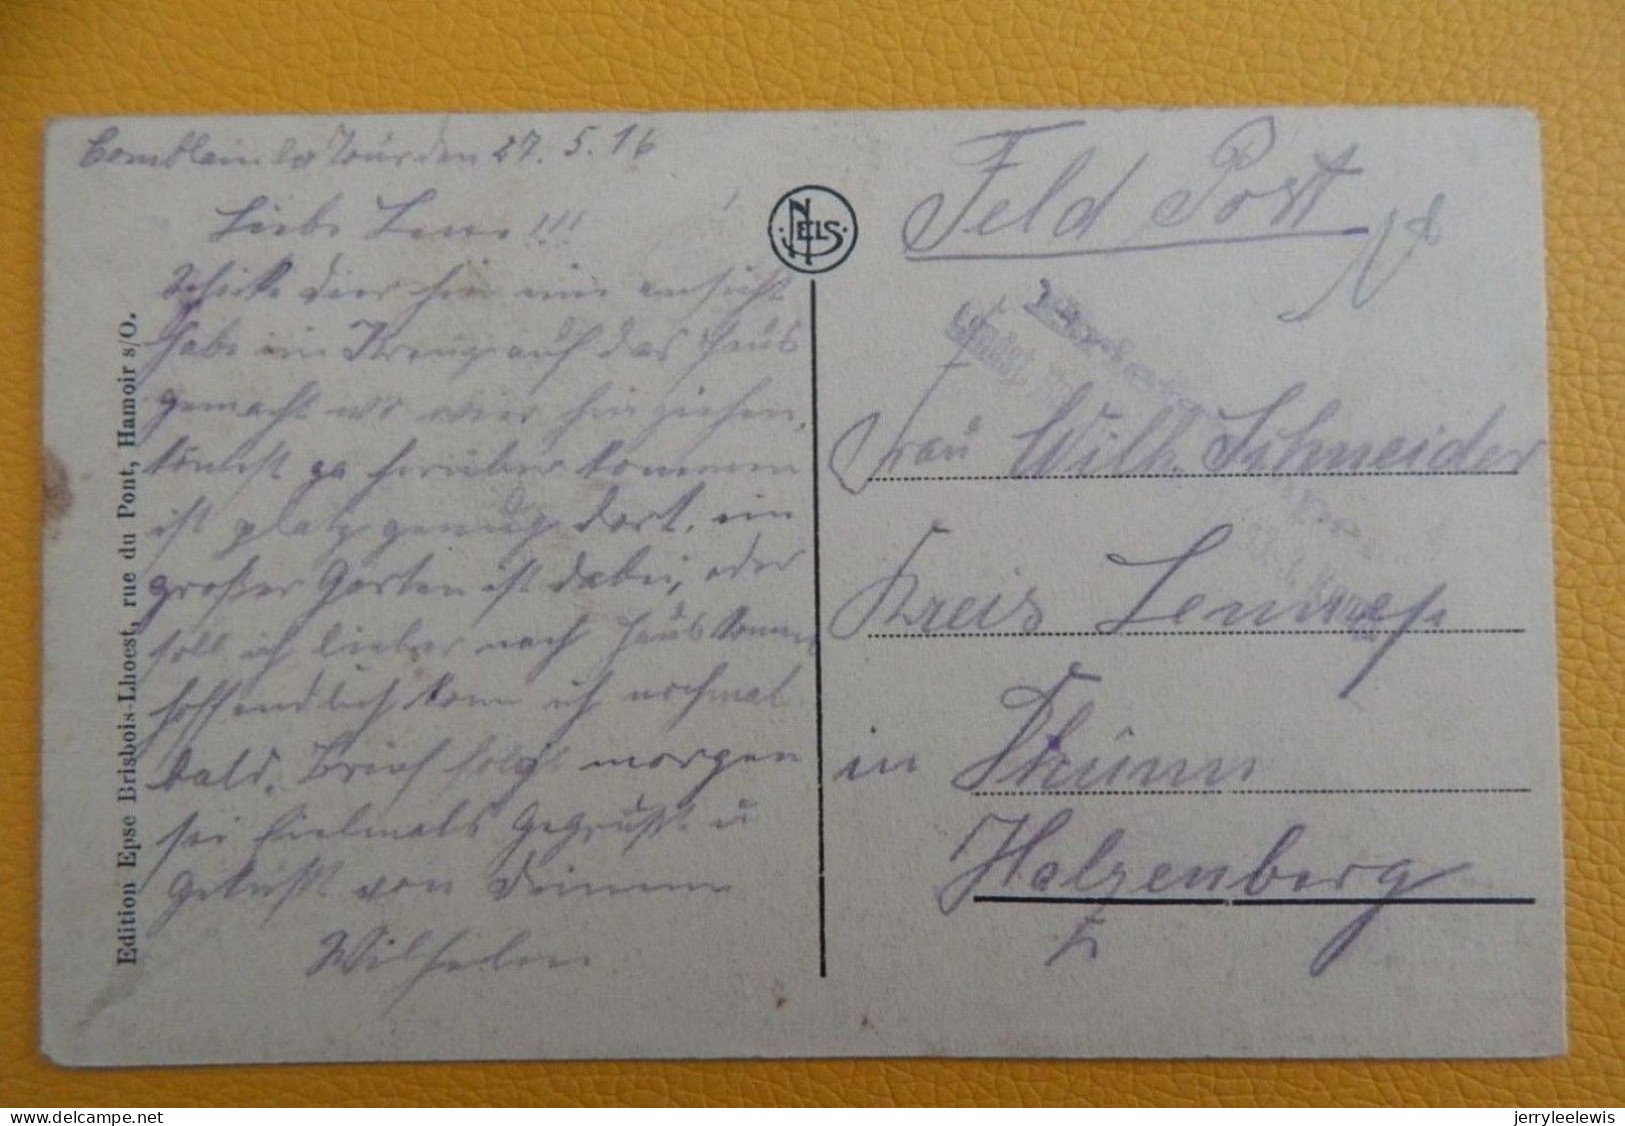 Comblain la Tour den 27. 5. 16
Liebe Lene!!!
Schicke dier hier eine ansicht
habe ein Kreuz auf das Haus
gemacht wo wier hin ziehen,
könnst ja herüber kommen
ist platz genug dort, ein
großer Garten ist dabei, oder
soll ich lieber nach Haus kommen
hoffendlich kann ich nochmal
bald. Brief folgt morgen
sei vielmals Gegrüßt u
Geküßt von Deinem
Wilhelm
Edition Epse Brisbois-Lhoest, rue du Pont, Hamoir s/O.
NELS
Feld Post
Frau Wilh. Schneider
Kreis Lennep
in Thünn
Holzenberg
jerryleelewis